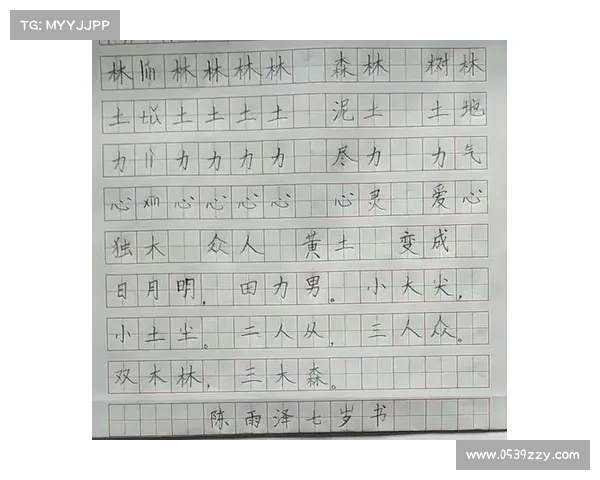 TG: MYYJJPP
林 lín 林 林 林 林 森林 树林
土 tǔ 土 土 土 土 泥土 土地
力 lì 力 力 力 力 尽力 力气
心 xīn 心 心 心 心 心灵 爱心
独木 众人 黄土 变成
日月明，田力男。小大尖，
小土尘。二人从，三人众。
双木林，三木森。
陈雨泽七岁书
www.0539zzy.com